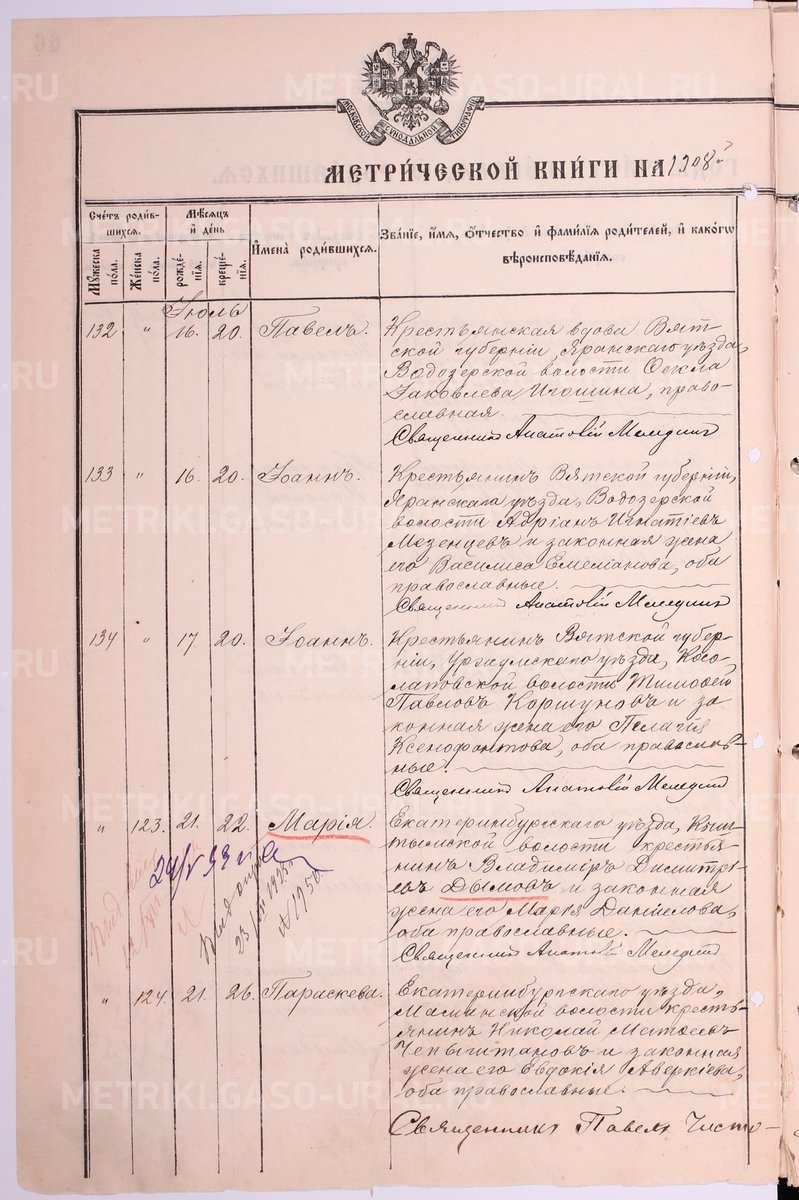 МОСКОВСКОЙ СѴНОДАЛЬНОЙ ТИПОГРАФІИ
МЕТРИ́ЧЕСКОЙ КНИ́ГИ НА 1908 г
Счетъ роди́в-
шихся.
Мѣсяцъ
и день
Имена̀ роди́вшихся.
Зва́ніе, имя, о́тчество и фами́лія роди́телей, и како́гѡ
вѣроисповѣ́данія.
Мужеска по́ла.
Же́нска по́ла.
рожде́-нія.
креще́-нія.
Іюль
132 " 16. 20. Павелъ.
Крестьянская вдова Вят-
ской губерніи, Яранскаго уѣзда,
Водозерской волости Ѳекла
Іаковлева Игошина, право-
славная.
Священникъ Анатолій Меледин
133 " 16. 20. Іоаннъ.
Крестьянинъ Вятской губерніи,
Яранскаго уѣзда, Водозерской
волости Адріанъ Игнатіевъ
Мезенцевъ и законная жена
его Василиса Емеліанова, оба
православные.
Священникъ Анатолій Меледин
134 " 17 20. Іоаннъ.
Крестьянинъ Вятской губер-
ніи, Уржумскаго уѣзда, Косо-
лаповской волости Тимоѳей
Павловъ Коршуновъ и за
конная жена его Пелагія
Ксенофонтова, оба православ-
ные.
Священникъ Анатолій Меледин
" 123. 21. 22. Марія.
Екатеринбургскаго уѣзда, Кыш-
тымской волости крестья-
нинъ Владиміръ Димитрі-
евъ Дымовъ и законная
жена его Марія Даніилова,
оба православные.
Священникъ Анатолій Меледин
23 1925
1950
" 124. 21. 26. Параскева.
Екатеринбургскаго уѣзда,
Маминской волости кресть-
янинъ Николай Матѳеевъ
Чепыштановъ и законная
жена его Евдокія Аверкіева,
оба православные.
Священникъ Павелъ Чисто-
METRIKI.GASO-URAL.RU